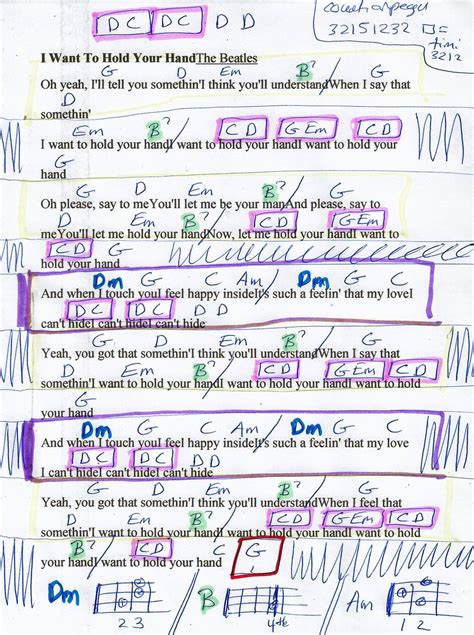 D C D C D D
32151232
3212
I Want To Hold Your HandThe Beatles
G D Em B7 G
Oh yeah, I'll tell you somethin'I think you'll understandWhen I say that
D
somethin'
Em B7 C D G Em C D
I want to hold your handI want to hold your handI want to hold your
G
hand
G D Em B7
Oh please, say to meYou'll let me be your manAnd please, say to
G D Em B7 C D G Em
meYou'll let me hold your handNow, let me hold your handI want to
C D G
hold your hand
Dm G C Am Dm G C
And when I touch youI feel happy insideIt's such a feelin' that my loveI
D C D C D D
can't hideI can't hideI can't hide
G D Em B7 G
Yeah, you got that somethin'I think you'll understandWhen I say that
D Em B7 C D G Em
somethin'I want to hold your handI want to hold your handI want to hold
C D G
your hand
Dm G C Am Dm G C
And when I touch youI feel happy insideIt's such a feelin' that my love
D C D C D D
I can't hideI can't hideI can't hide
G D Em B7 G
Yeah, you got that somethin'I think you'll understandWhen I feel that
D Em B7 C D G Em C D
somethin'I want to hold your handI want to hold your handI want to hold
B7 C D C G
your handI want to hold your hand
Dm B Am
2 3 4th 1 2